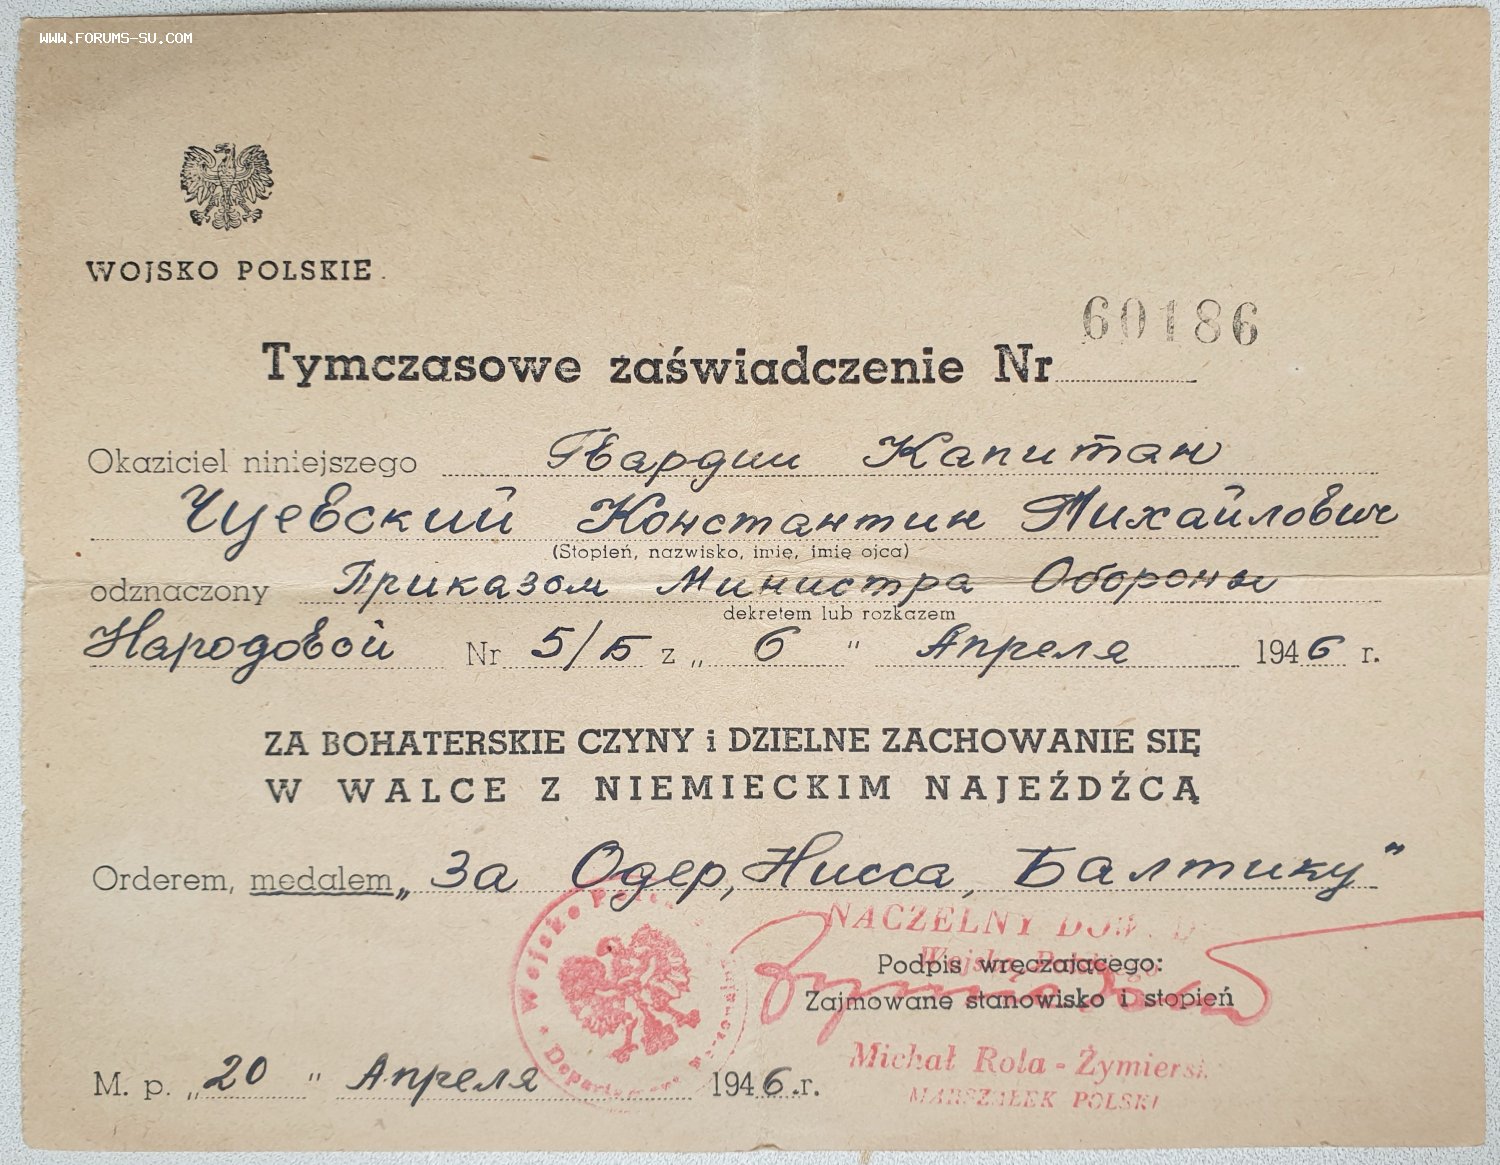 WWW.FORUMS-SU.COM
WOJSKO POLSKIE.
60186
Tymczasowe zaświadczenie Nr
Okaziciel niniejszego Гвардии Капитан
Чуевский Константин Михайлович
(Stopień, nazwisko, imię, imię ojca)
odznaczony Приказом Министра Обороны
dekretem lub rozkazem
Народовой Nr 5/Б z „ 6 " Апреля 1946 r.
ZA BOHATERSKIE CZYNY i DZIELNE ZACHOWANIE SIĘ
W WALCE Z NIEMIECKIM NAJEŹDŹCĄ
Orderem, medalem „За Одер, Нисса, Балтику"
NACZELNY
Podpis wręczającego:
Zajmowane stanowisko i stopień
Wojsko
Michał Rola-Żymiersk
M. p. „20 " Апреля 1946.r.
MARSZAŁEK POLSKI